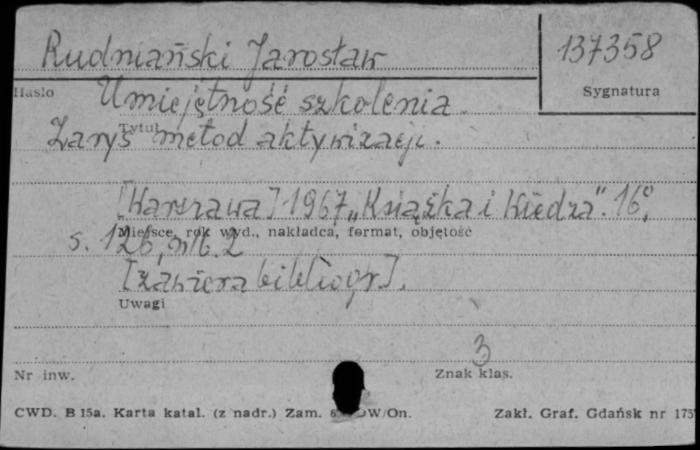 Rudniański Jarosław
137358
Hasło
Umiejętność szkolenia.
Sygnatura
Tytuł
Zarys metod aktywizacji.
[Warszawa] 1967 „Książka i Wiedza”. 16°,
Miejsce, rok wyd., nakładca, format, objętość
s. 126, nlb. 2
[zawiera bibliogr].
Uwagi
3
Nr inw.
Znak klas.
CWD. B 15a. Karta katal. (z nadr.) Zam. OW/On.
Zakł. Graf. Gdańsk nr 175